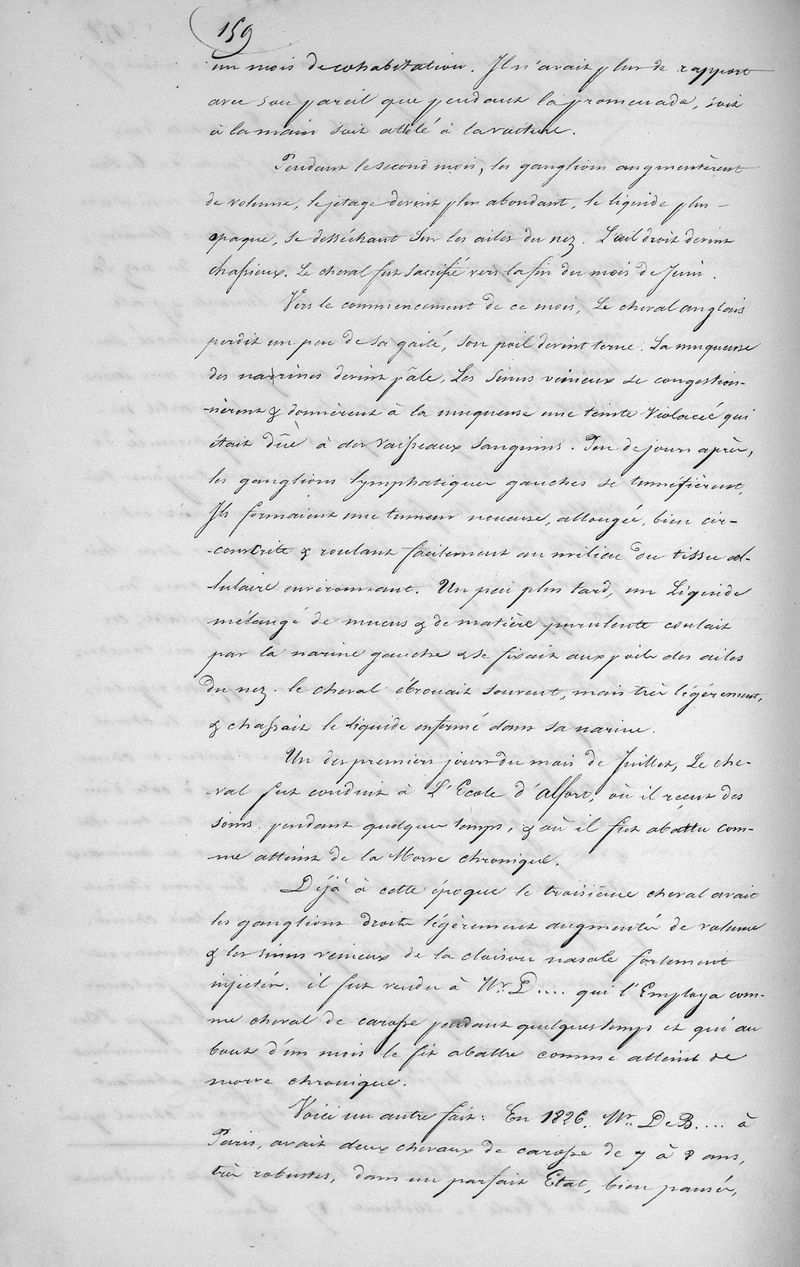 159
un mois de cohabitation. Il n'avait plus de rapport
avec son pareil que pendant la promenade, soit
à la main soit attelé à la voiture.
Pendant le second mois, les ganglions augmentèrent
de volume, le jetage devint plus abondant, le liquide plus
épaque, se desséchant sur les ailes du nez. L'œil droit devint
chassieux. Le cheval fut sacrifié vers la fin du mois de Juin.
Vers le commencement de ce mois, Le cheval anglais
perdit un peu de sa gaité, son poil devint terne. La muqueuse
des narines devint pâle, Les Sinus veineux se congestion-
-nèrent & donnèrent à la muqueuse une teinte violacée qui
était dûe à des vaisseaux sanguins. Peu de jours après,
les ganglions lymphatiques gauches se tuméfièrent,
Ils formaient une tumeur noueuse, allongée, bien cir-
-conscrite & roulant facilement au milieu du tissu cel-
-lulaire environnant. Un peu plus tard, un Liquide
mélangé de mucus & de matière purulente coulait
par la narine gauche & se fixait aux poils des ailes
du nez. le cheval ébrouait souvent, mais très légèrement,
& chassait le liquide enfermé dans sa narine.
Un des premiers jours du mois de Juillet, Le che-
-val fut conduit à L'Ecole d'alfort, où il reçut des
soins pendant quelque temps, & où il fut abattu com-
-me atteint de la Morve chronique.
Déjà à cette époque le troisième cheval avait
les ganglions droits légèrement augmentés de volume
& les sinus veineux de la cloison nasale fortement
injectés. il fut vendu à Mr. D.... qui l'Employa com-
-me cheval de carosse pendant quelques temps et qui au
bout d'un mois le fit abattre comme atteint de
morve chronique.
Voici un autre fait: En 1826. Mr. De B.... à
Paris, avait deux chevaux de carosse de 7 à 8 ans,
très robustes, dans un parfait Etat, bien pansés,